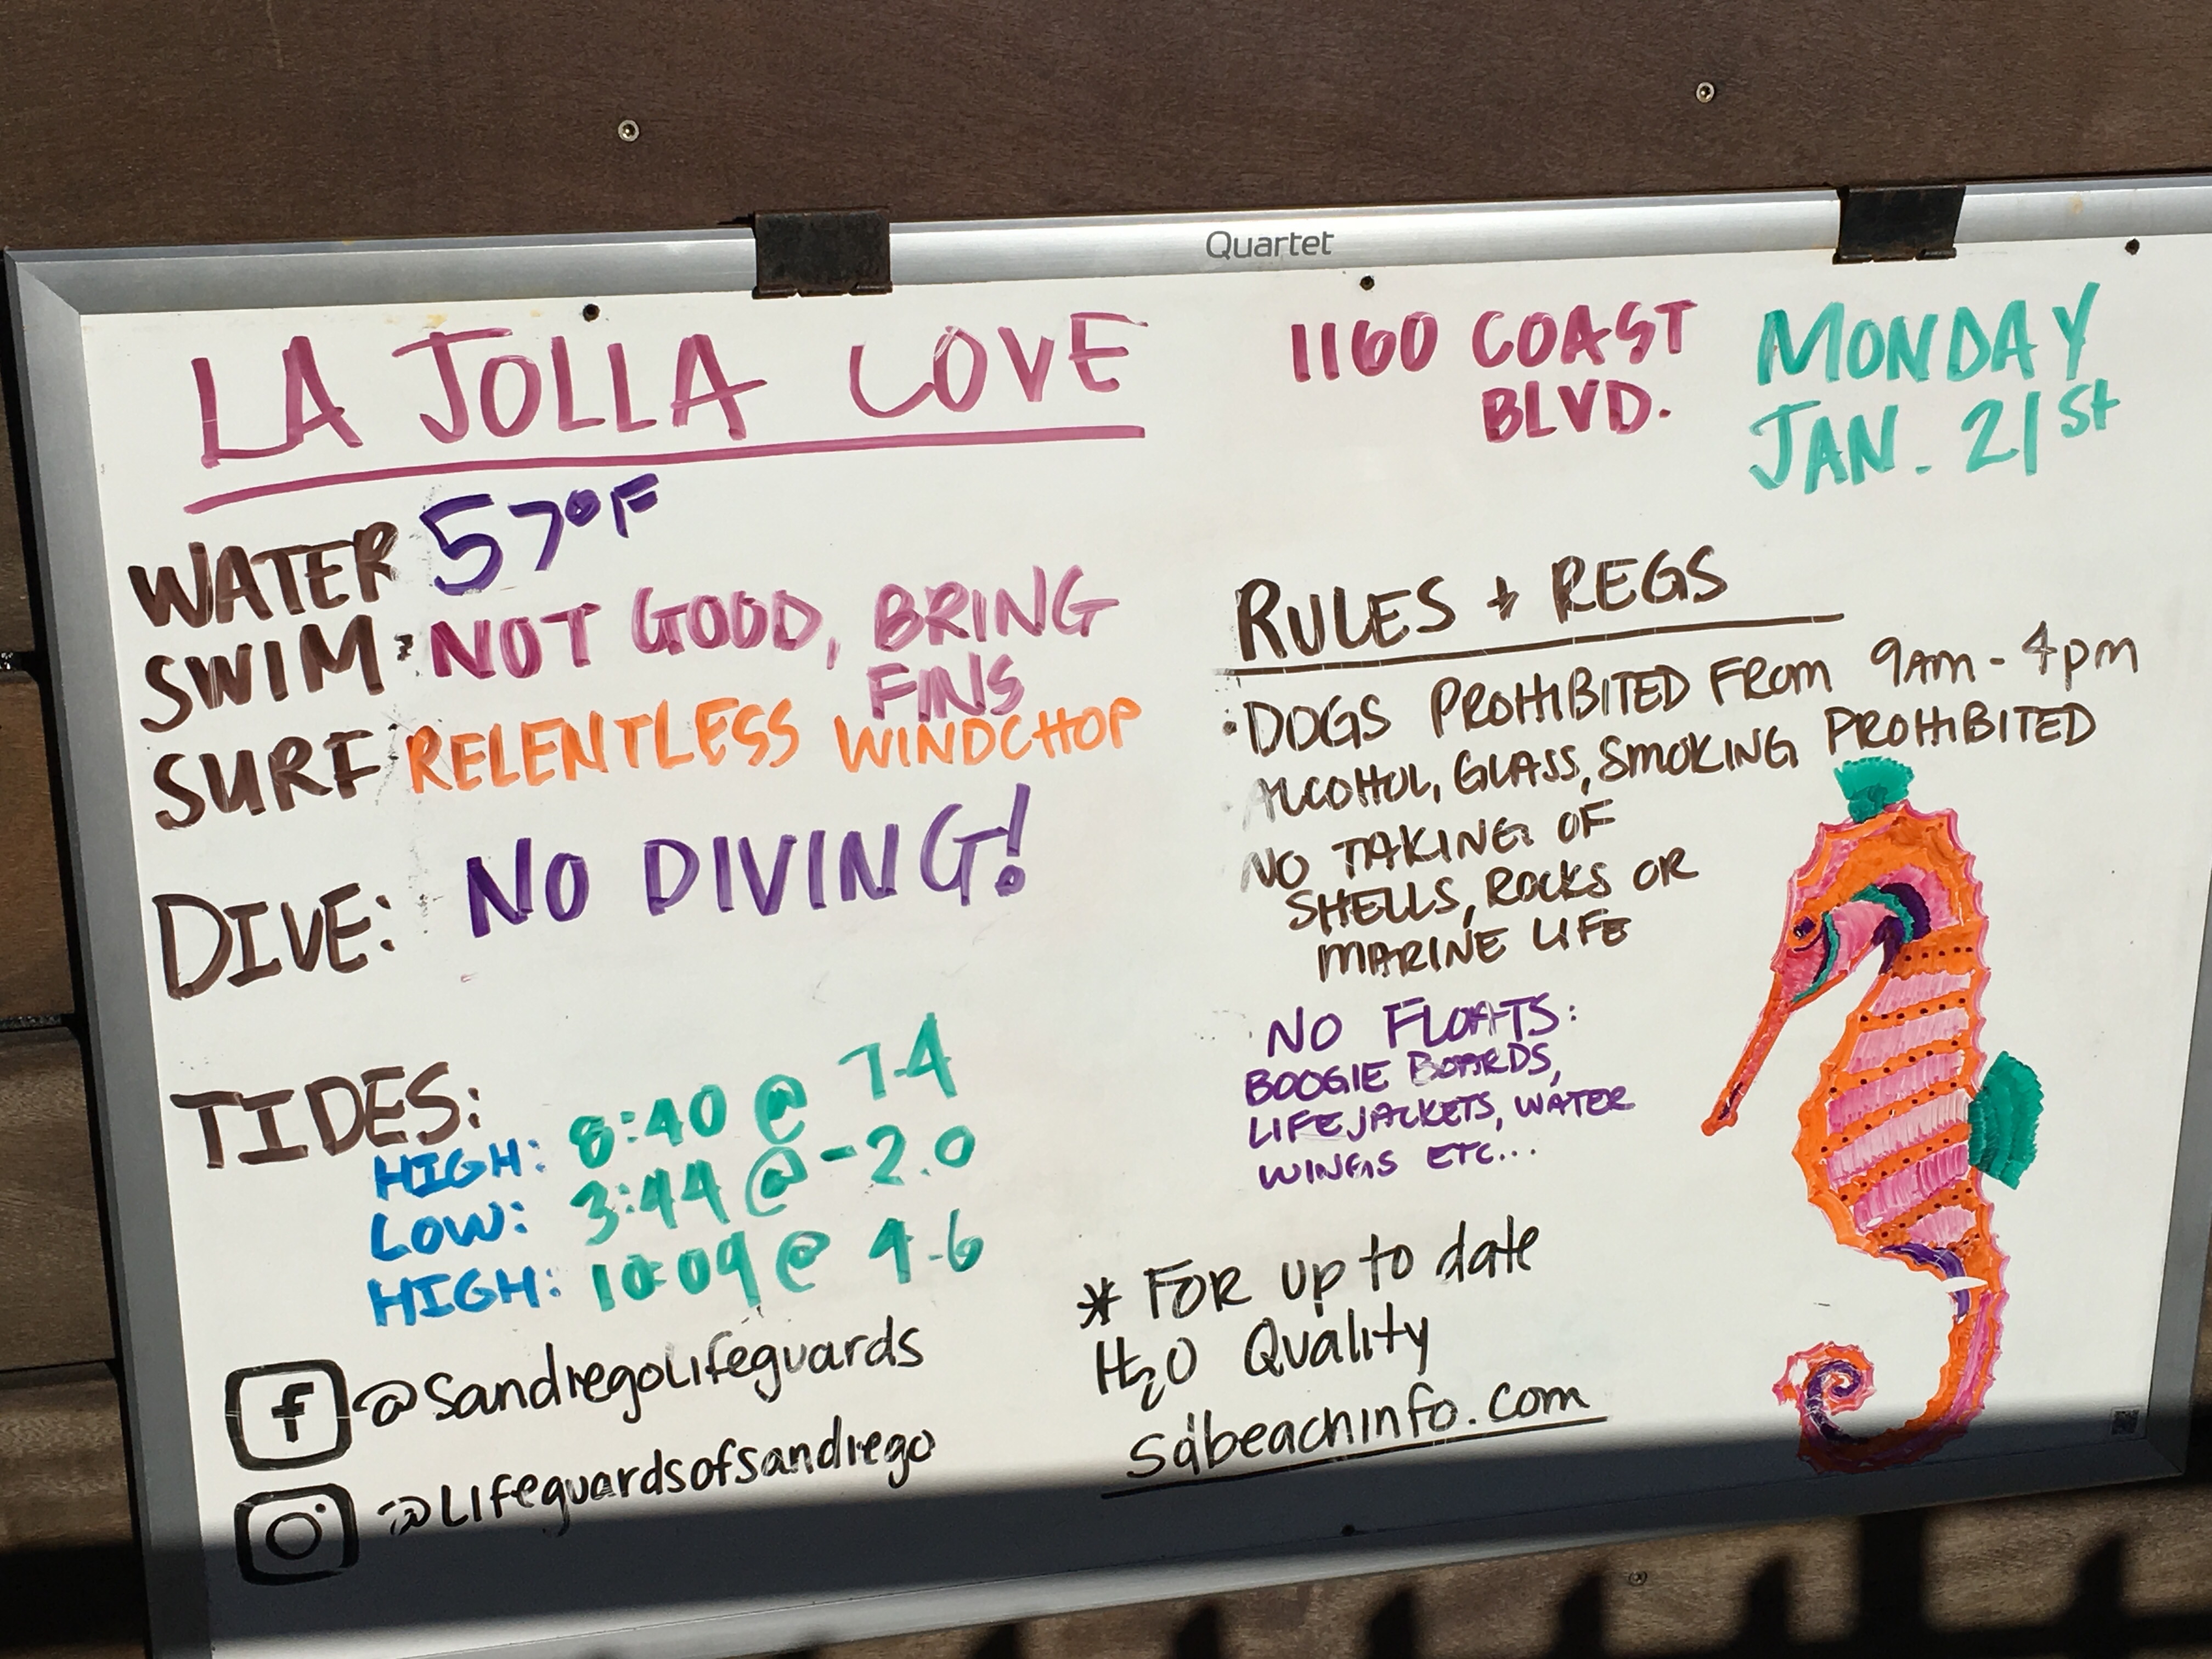 Quartet
LA JOLLA COVE
1160 COAST
BLVD.
MONDAY
JAN. 21st
WATER 57°F
SWIM: NOT GOOD, BRING
FINS
SURF: RELENTLESS WINDCHOP
DIVE: NO DIVING!
TIDES:
HIGH: 8:40 @ 7.4
LOW: 3:44 @ -2.0
HIGH: 10:09 @ 4.6
f @sandiegolifeguards
@lifeguardsofsandiego
RULES + REGS
• DOGS PROHIBITED FROM 9AM - 4pm
• ALCOHOL, GLASS, SMOKING PROHIBITED
NO TAKING OF
SHELLS, ROCKS OR
MARINE LIFE
NO FLOATS:
BOOGIE BOARDS,
LIFEJACKETS, WATER
WINGS ETC...
* FOR up to date
H₂O Quality
sdbeachinfo.com